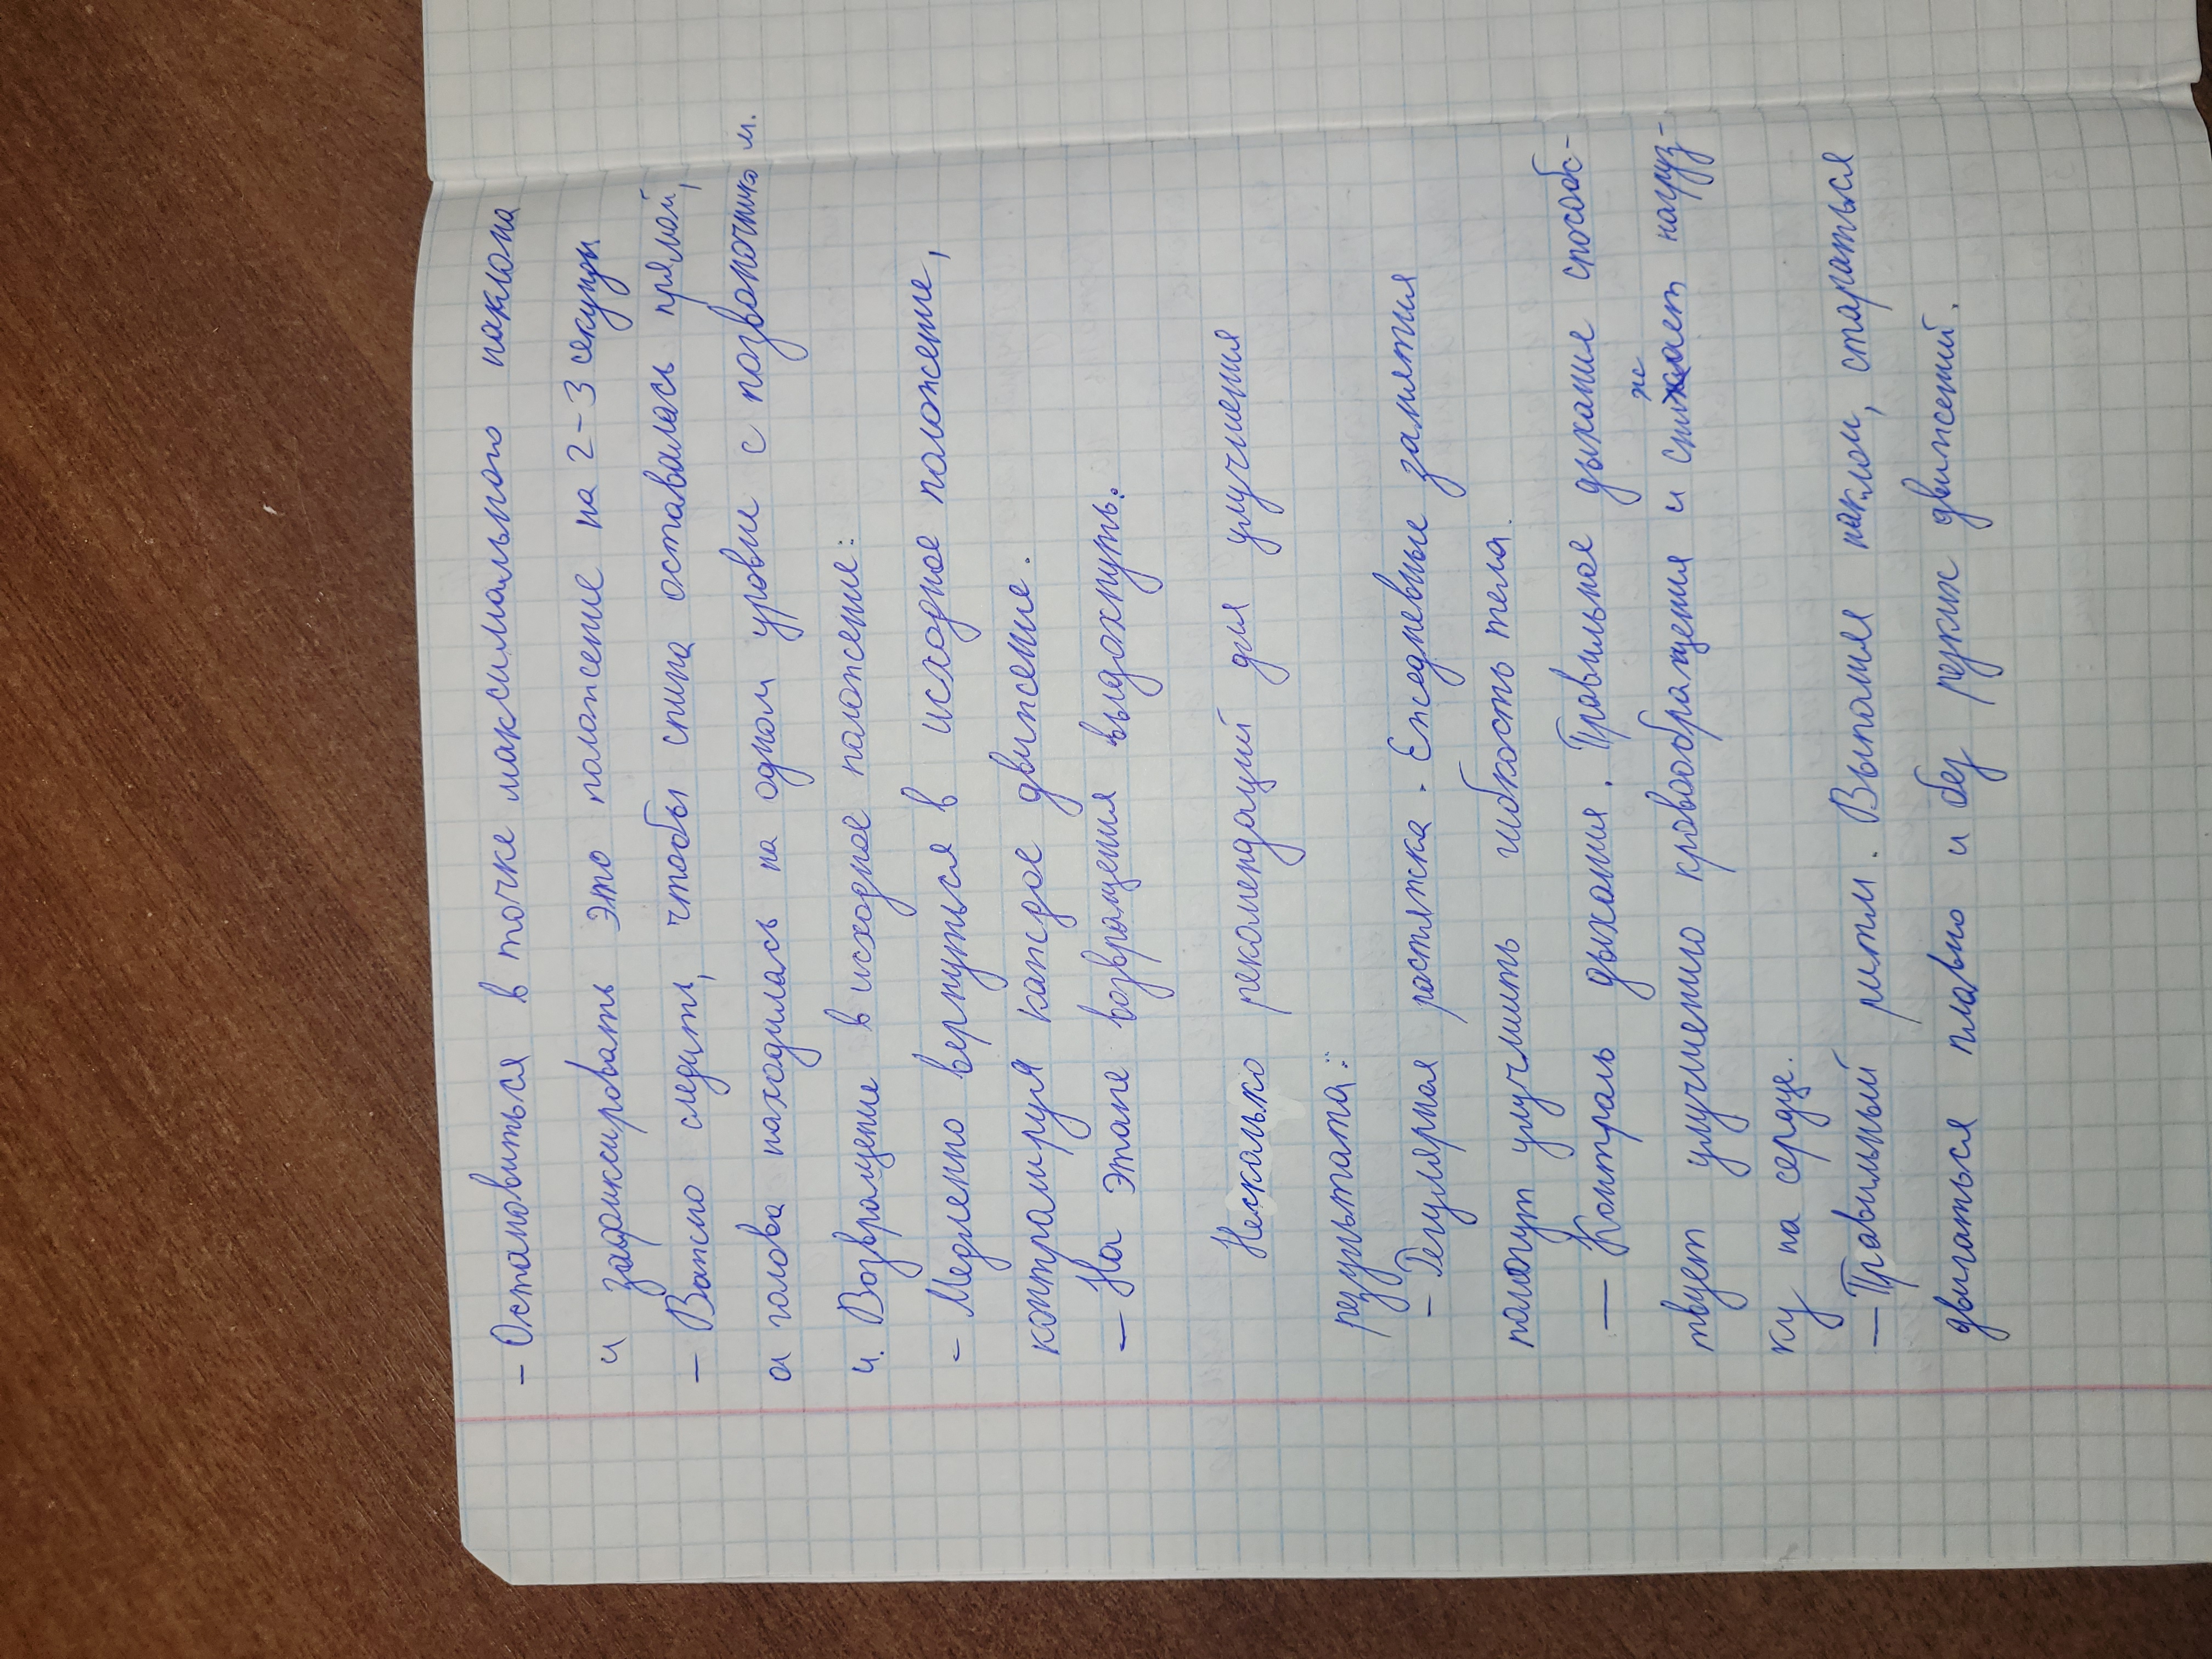 - Остановиться в точке максимального наклона
и зафиксировать это положение на 2-3 секунды
- Важно следить, чтобы спина оставалась прямой,
а голова находилась на одном уровне с позвоночником.
4. Возвращение в исходное положение:
- Медленно вернуться в исходное положение,
контролируя каждое движение.
- На этапе возвращения выдохнуть.
Несколько рекомендаций для улучшения
результата:
- Регулярная растяжка. Ежедневные занятия
помогут улучшить гибкость тела.
- Контроль дыхания. Правильное дыхание способс-
твует улучшению кровообращения и снижает нагруз-
ку на сердце.
- Правильный ритм. Выполняя наклон, стараться
двигаться плавно и без резких движений.